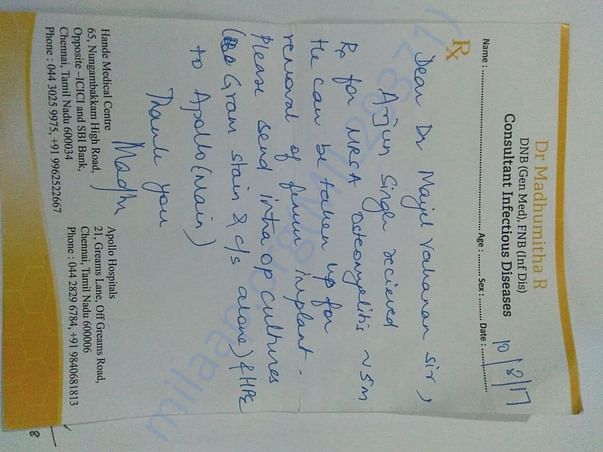 Dr Madhumitha R
DNB (Gen Med), FNB (Inf Dis)
Consultant Infectious Diseases
Name : Age : Sex : Date : 10/8/17
Rx
Dear Dr Mayil Vahanan sir,
Arjun Singh recieved
Rx for MRSA osteomyelitis ~5m
He can be taken up for
removal of femur implant.
Please send intra op cultures
(Gram stain & c/s alone) & HPE
to Apollo (Main)
Thank you
Madhu
Hande Medical Centre
65, Nungambakkam High Road,
Opposite –ICICI and SBI Bank,
Chennai, Tamil Nadu 600034
Phone : 044 3025 9975, +91 9962522667
Apollo Hospitals
21, Greams Lane, Off Greams Road,
Chennai, Tamil Nadu 600006
Phone : 044 2829 6784, +91 9840681813